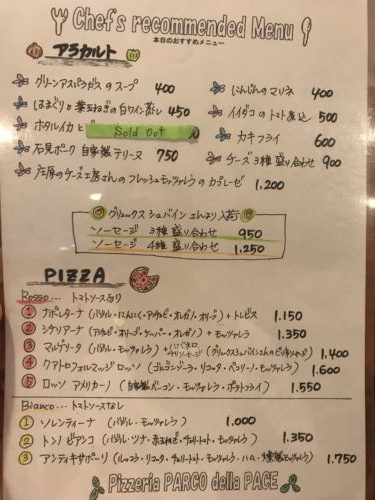 Chef's recommended Menu
本日のおすすめメニュー
アラカルト
グリーンアスパラガスのスープ 400
にんじんのマリネ 400
はまぐりと葉玉ねぎの白ワイン蒸し 450
イイダコのトマト煮込 500
ホタルイカと Sold Out
カキフライ 600
石見ポーク 自家製テリーヌ 750
チーズ3種盛り合わせ 900
チーズ工房さんのフレッシュモッツァレラのカプレーゼ 1.200
グリュックスシュバインさんより入荷
ソーセージ 3種盛り合わせ 950
ソーセージ 4種盛り合わせ 1.250
PIZZA
Rosso... トマトソースあり
① ナポレターナ (バジル・にんにく・アンチョビ・オレガノ・オリーブ)+トレビス 1.150
② シチリアーナ (アンチョビ・オリーブ・ケーパー・オレガノ)+モッツァレラ 1.350
③ マルゲリータ (バジル・モッツァレラ)+ 1.400
④ クアトロフォルマッジロッソ (ゴルゴンゾーラ・リコッタ・ペコリーノ・モッツァレラ) 1.600
⑤ ロッソ アメリカーノ (自家製ベーコン・モッツァレラ・ポテトフライ) 1.550
Bianco... トマトソースなし
① ソレンティーナ (バジル・モッツァレラ) 1.000
② トンノビアンコ (バジル・ツナ・赤玉ねぎ・チェリートマト・モッツァレラ) 1.350
③ アンティキサポーリ (ルッコラ・リコッタ・チェリートマト・モッツァレラ・ハム・燻製モッツァレラ) 1.750
Pizzeria PARCO della PACE